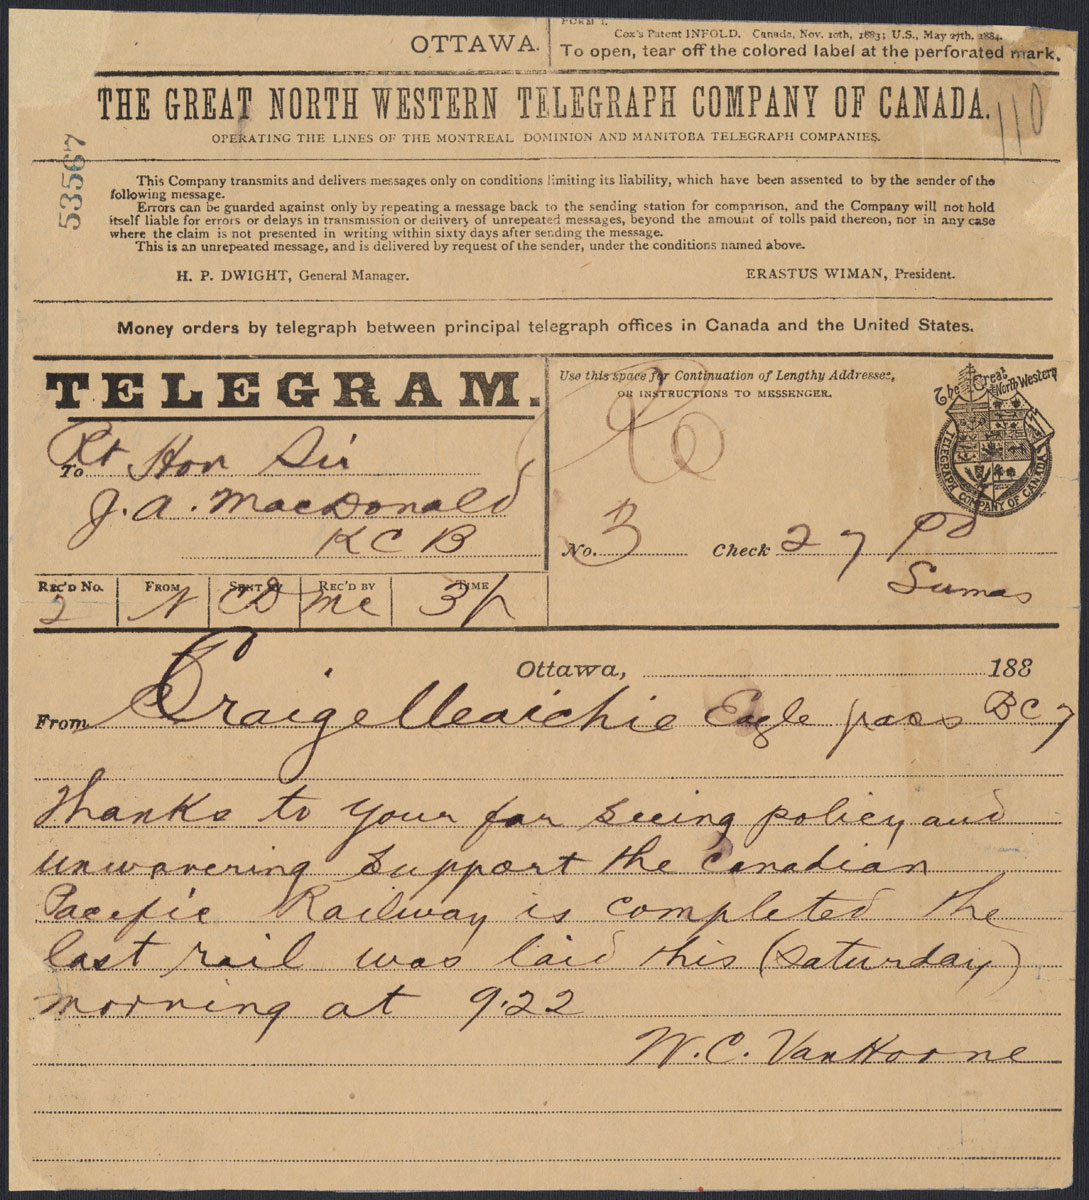 FORM 1.
OTTAWA.
Cox's Patent INFOLD. Canada, Nov. 10th, 1883; U.S., May 27th, 1884.
To open, tear off the colored label at the perforated mark.
THE GREAT NORTH WESTERN TELEGRAPH COMPANY OF CANADA.
110
OPERATING THE LINES OF THE MONTREAL DOMINION AND MANITOBA TELEGRAPH COMPANIES.
53567
This Company transmits and delivers messages only on conditions limiting its liability, which have been assented to by the sender of the
following message.
Errors can be guarded against only by repeating a message back to the sending station for comparison, and the Company will not hold
itself liable for errors or delays in transmission or delivery of unrepeated messages, beyond the amount of tolls paid thereon, nor in any case
where the claim is not presented in writing within sixty days after sending the message.
This is an unrepeated message, and is delivered by request of the sender, under the conditions named above.
H. P. DWIGHT, General Manager. ERASTUS WIMAN, President.
Money orders by telegraph between principal telegraph offices in Canada and the United States.
TELEGRAM.
Use this space for Continuation of Lengthy Addresses,
OR INSTRUCTIONS TO MESSENGER.
The Great North Western
TELEGRAPH COMPANY OF CANADA
To Rt Hon Sir
J. A. MacDonald
K C B
No. 3 Check 27 pd
Sumas
REC'D No. FROM SENT BY REC'D BY TIME
2 N CD Mc 3p
Ottawa, 188
From Craigelleaichie Eagle pass BC 7
Thanks to your far seeing policy and
unwavering support the Canadian
Pacific Railway is completed the
last rail was laid this (Saturday)
morning at 9.22
W. C. VanHorne